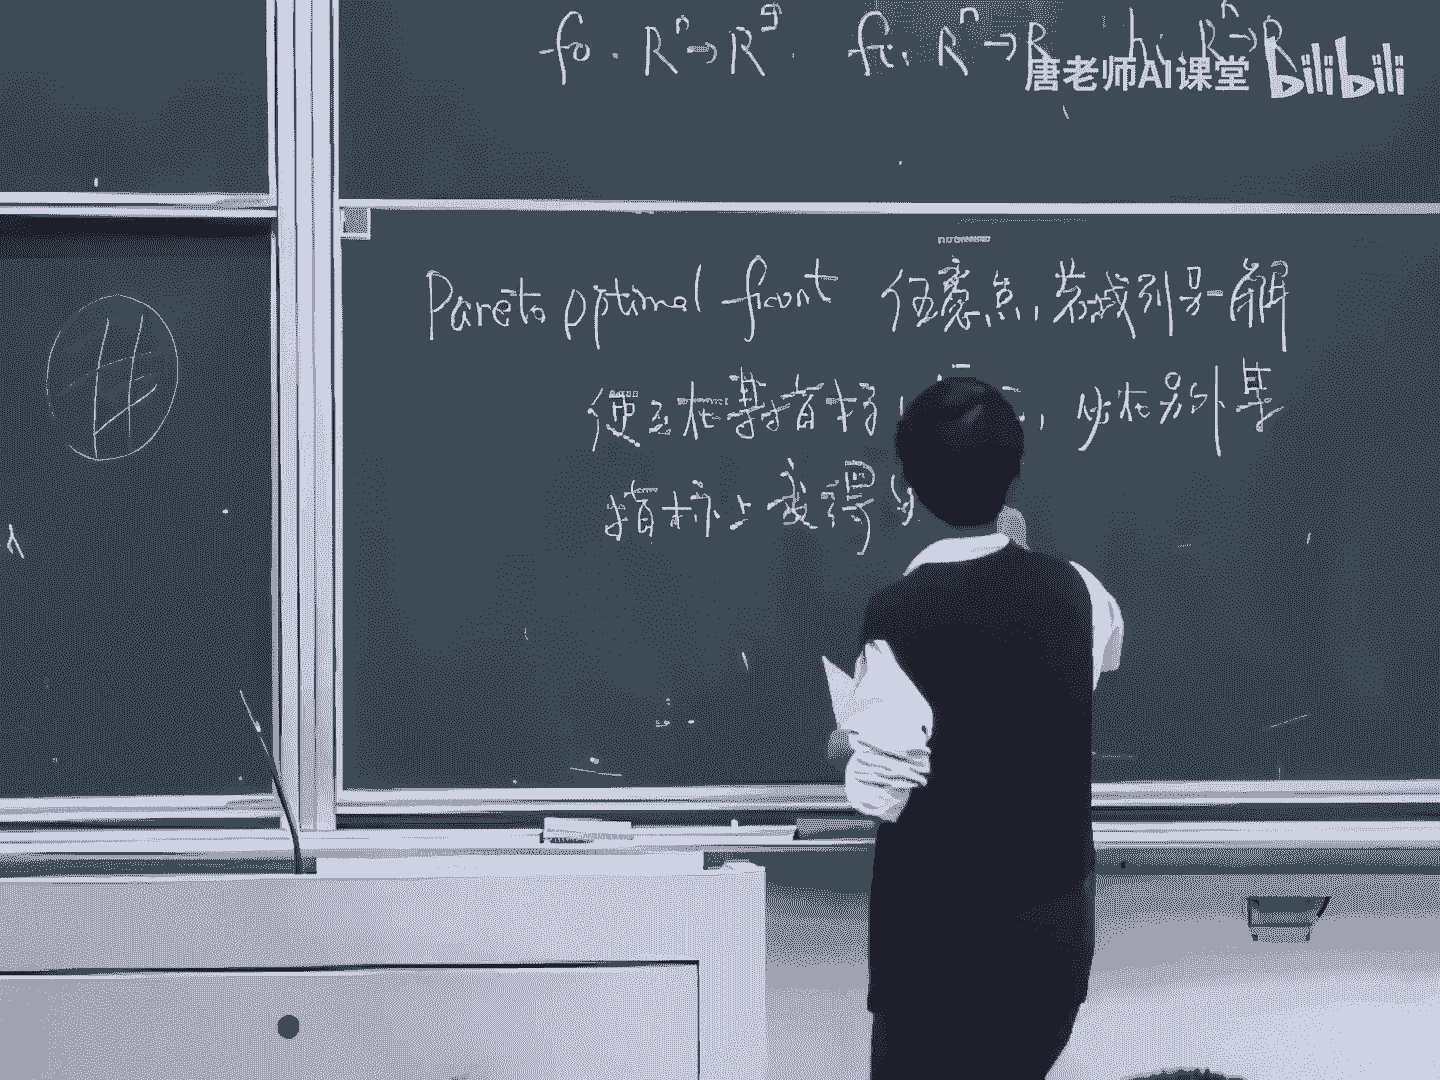 f₀: Rⁿ→R^q. fᵢ: Rⁿ→R hᵢ: Rⁿ→R
唐老师AI课堂 bilibili
Pareto optimal front 任意点,若找到另一解
使之在某指标 ,必在另外某
指标上变得
λ